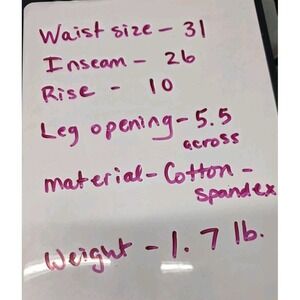 Waist size - 31
Inseam - 26
Rise - 10
Leg opening - 5.5
across
material - Cotton -
Spandex
Weight - 1.7 lb.